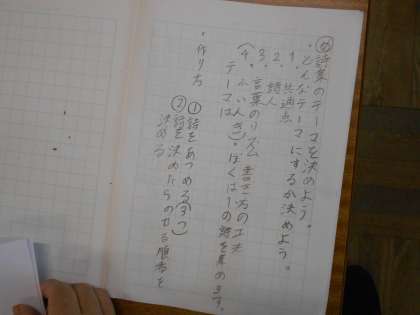 め 詩集のテーマを決めよう。
・どんなテーマにするか決めよう。
1. 共通点
2. 詩人
3. 言葉のリズム 書き方の工夫
(4. ふんいき)・ぼくは1の詩を集めます。
テーマは
・作り方
① 詩をあつめる(3つ)
② 詩を決めたらのせる順番を
決める